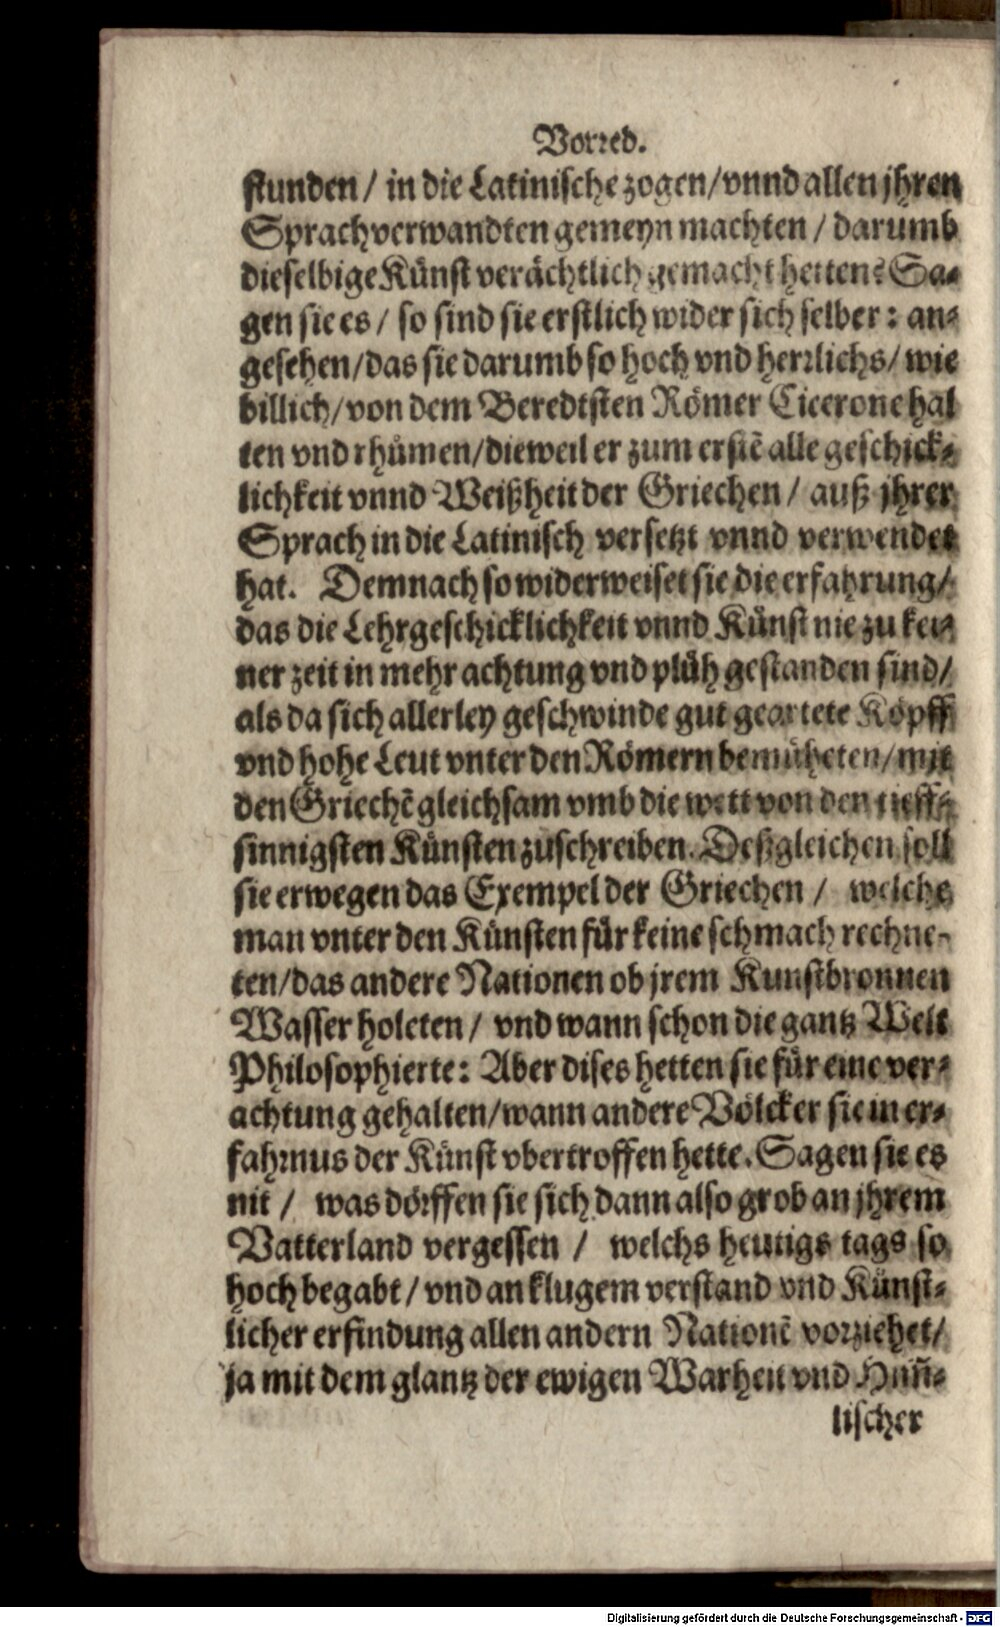 Vorred.
stunden / in die Latinische zogen / vnnd allen jhren
Sprachverwandten gemeyn machten / darumb
dieselbige Künst verächtlich gemacht hetten? Sa⸗
gen sie es / so sind sie erstlich wider sich selber: an⸗
gesehen / das sie darumb so hoch vnd herrlichs / wie
billich / von dem Beredtsten Römer Cicerone hal
ten vnd rhümen / dieweil er zum erstē alle geschick⸗
lichkeit vnnd Weißheit der Griechen / auß jhrer
Sprach in die Latinisch versetzt vnnd verwendet
hat. Demnach so widerweiset sie die erfahrung /
das die Lehrgeschicklichkeit vnnd Künst nie zu kei⸗
ner zeit in mehr achtung vnd plüh gestanden sind /
als da sich allerley geschwinde gut geartete Köpff
vnd hohe Leut vnter den Römern bemüheten / mit
den Griechē gleichsam vmb die wett von den tieff⸗
sinnigsten Künsten zuschreiben. Deßgleichen soll
sie erwegen das Exempel der Griechen / welche
man vnter den Künsten für keine schmach rechne⸗
ten / das andere Nationen ob jrem Kunstbronnen
Wasser holeten / vnd wann schon die gantz Welt
Philosophierte: Aber dises hetten sie für eine ver⸗
achtung gehalten / wann andere Völcker sie in er⸗
fahrnus der Künst vbertroffen hette. Sagen sie es
nit / was dörffen sie sich dann also grob an jhrem
Vatterland vergessen / welchs heutigs tags so
hoch begabt / vnd an klugem verstand vnd Künst⸗
licher erfindung allen andern Nationē vorziehet /
ja mit dem glantz der ewigen Warheit vnd Him̃⸗
lischer
Digitalisierung gefördert durch die Deutsche Forschungsgemeinschaft - DFG